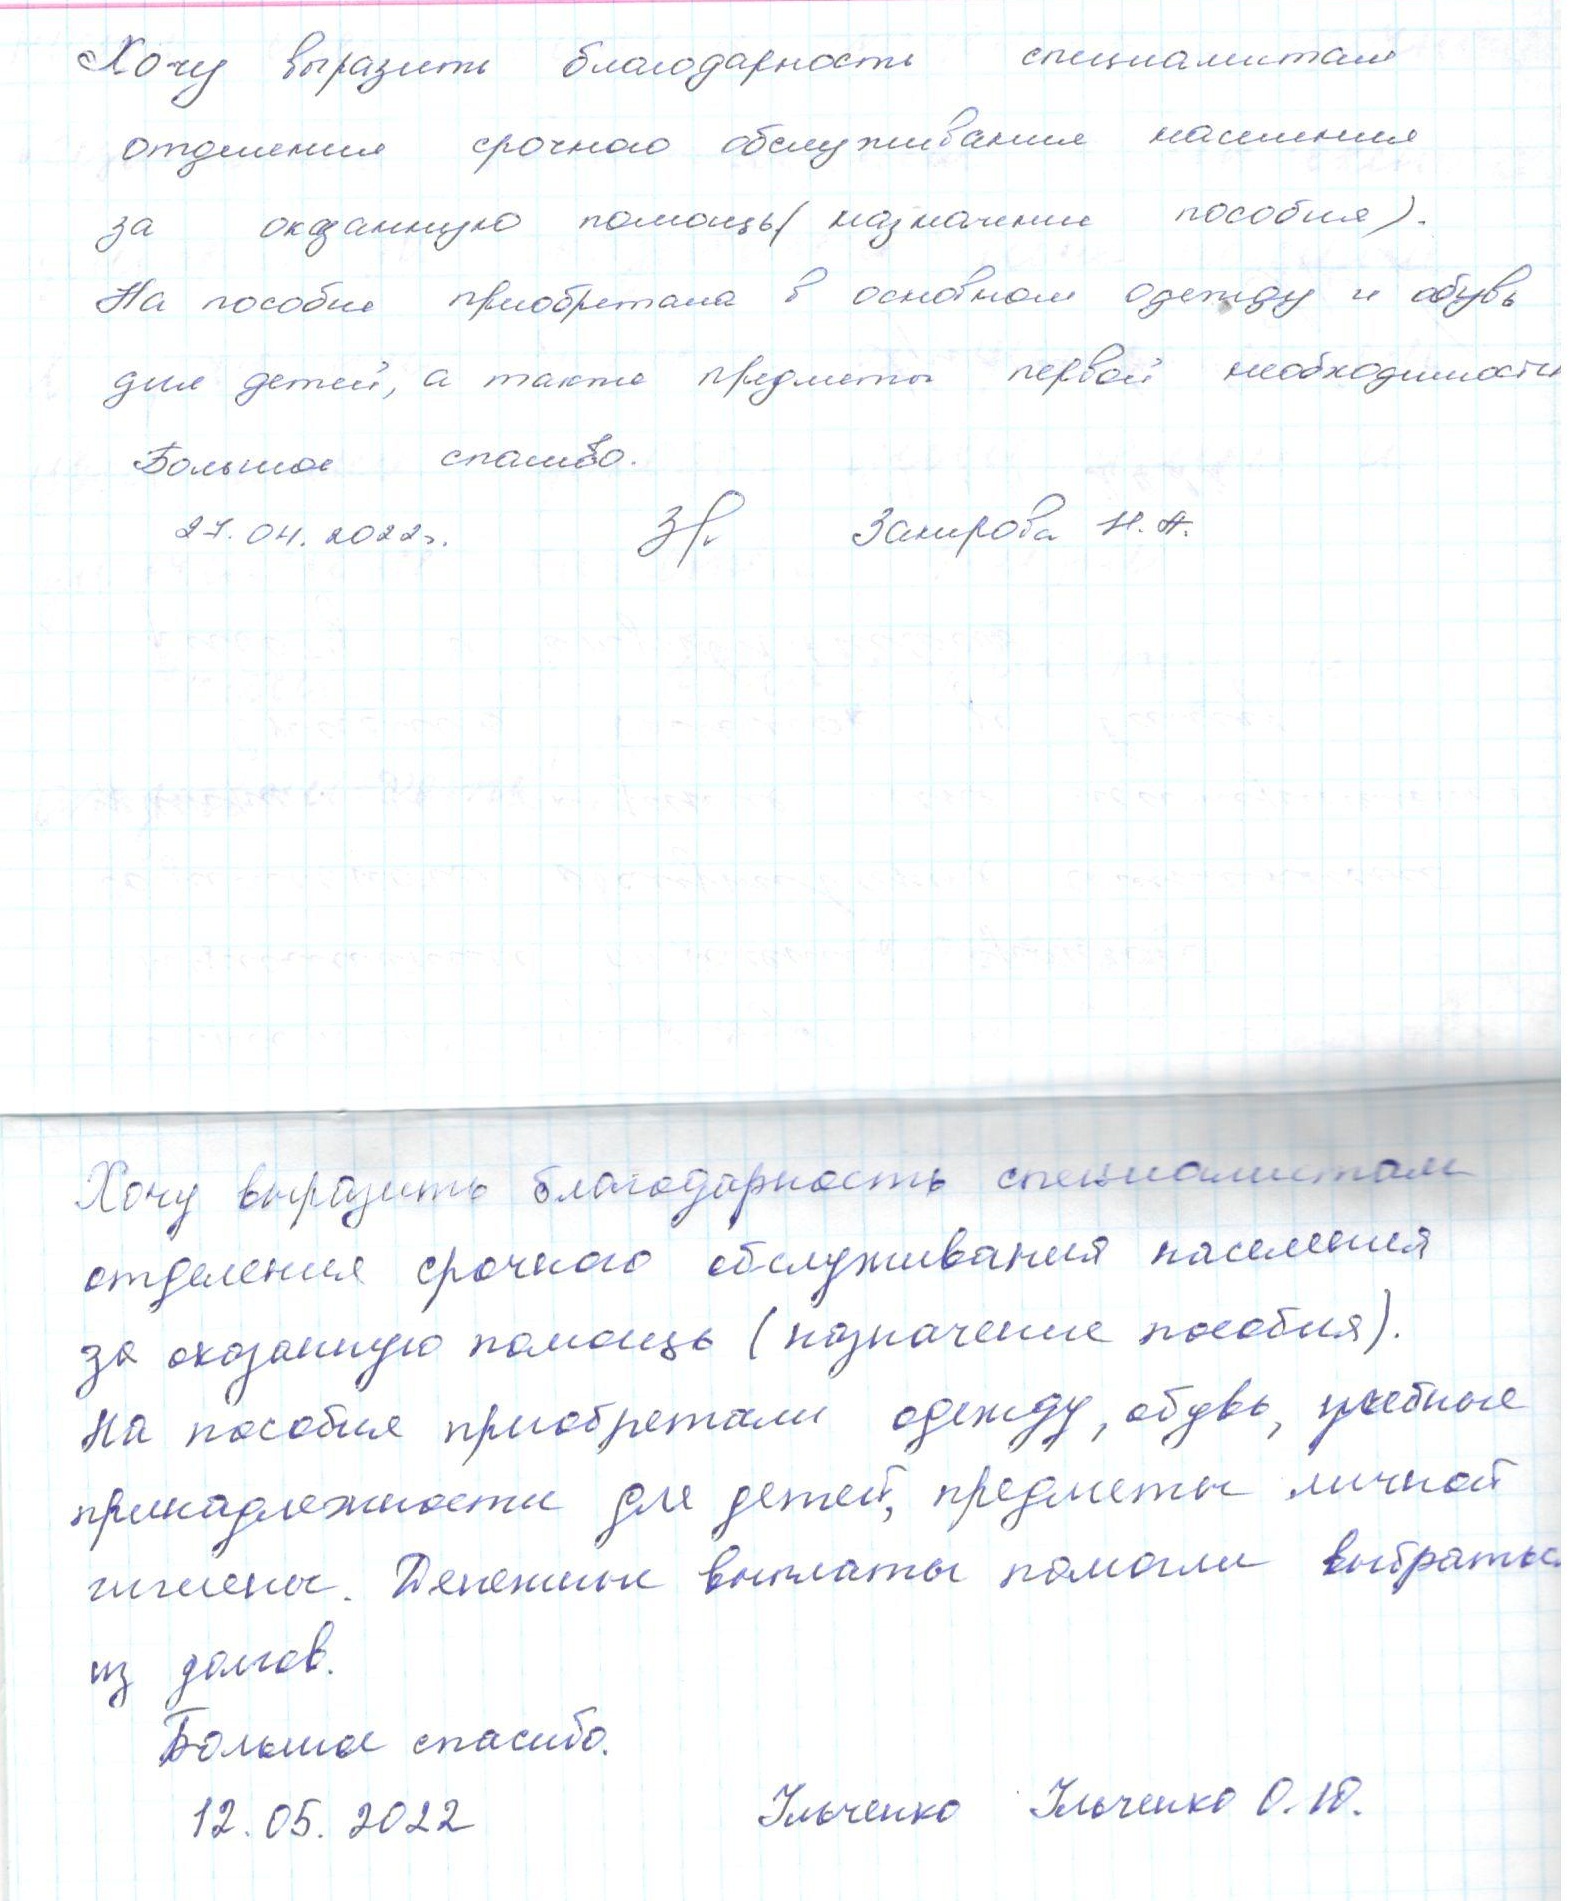 Хочу выразить благодарность специалистам
отделения срочного обслуживания населения
за оказанную помощь (назначение пособия).
На пособие приобретала в основном одежду и обувь
для детей, а также предметы первой необходимости
Большое спасибо.
27.04.2022г. Закирова Н.А.
Хочу выразить благодарность специалистам
отделения срочного обслуживания населения
за оказанную помощь (назначение пособия).
На пособия приобретали одежду, обувь, учебные
принадлежности для детей, предметы личной
гигиены. Денежные выплаты помогли выбраться
из долгов.
Большое спасибо.
12.05.2022 Ильченко Ильченко О.Ю.